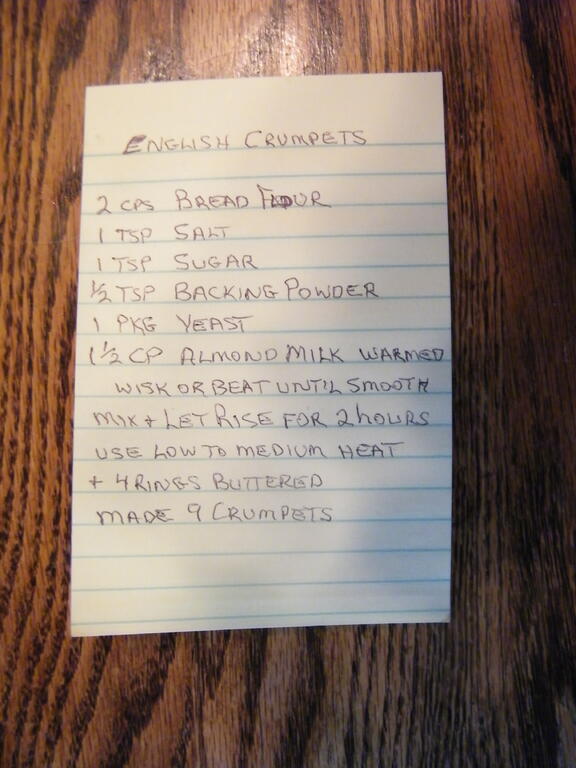 ENGLISH CRUMPETS
2 CPS BREAD FLOUR
1 TSP SALT
1 TSP SUGAR
½ TSP BACKING POWDER
1 PKG YEAST
1 ½ CP ALMOND MILK WARMED
WISK OR BEAT UNTIL SMOOTH
MIX + LET RISE FOR 2 hOURS
USE LOW TO MEDIUM HEAT
+ 4 RINGS BUTTERED
MADE 9 CRUMPETS